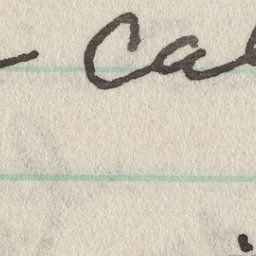 - Cal